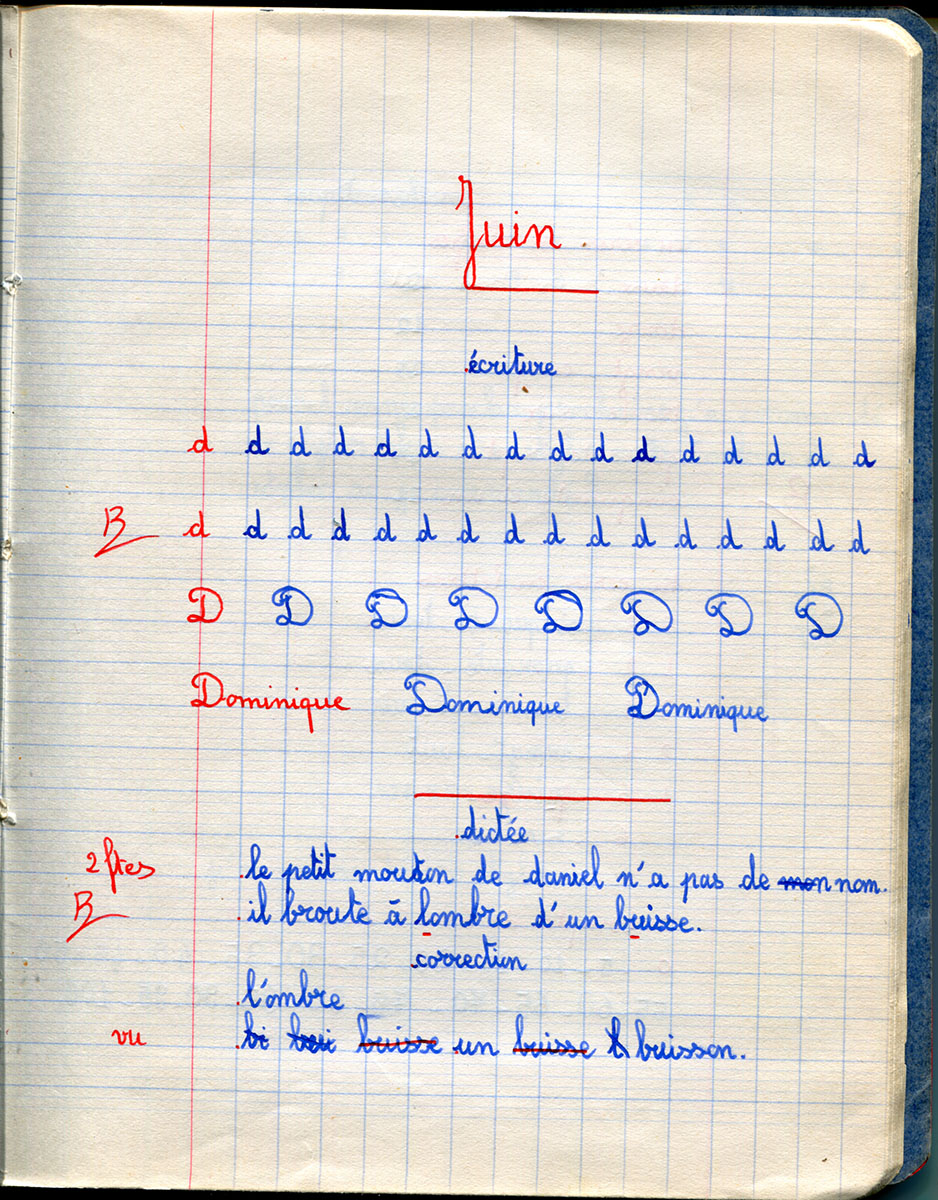 Juin.
écriture
d d d d d d d d d d d d d d d d
B d d d d d d d d d d d d d d d d
D D D D D D D D
Dominique Dominique Dominique
dictée
2 ftes le petit mouton de daniel n'a pas de mon nom.
B il broute à lombre d'un buisse.
correction
l'ombre
vu bi bui buisse un buisse b buisson.